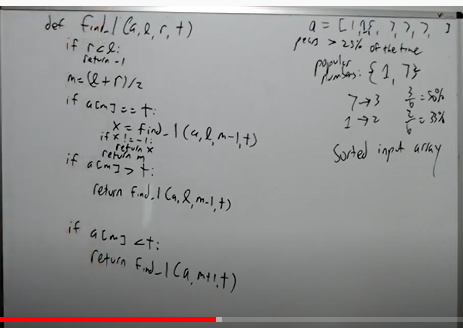 def find_l(a, l, r, t)
if r < l:
return -1
m = (l + r)/2
if a[m] == t:
x = find_l(a, l, m-1, t)
if x != -1:
return x
return m
if a[m] > t:
return find_l(a, l, m-1, t)
if a[m] < t:
return find_l(a, m+1, t)
a = [1, 7, 7, 7, ]
> 25% of the time
popular
numbers: {1, 7}
7 → 3 3/6 = 50%
1 → 2 2/6 = 33%
Sorted input array